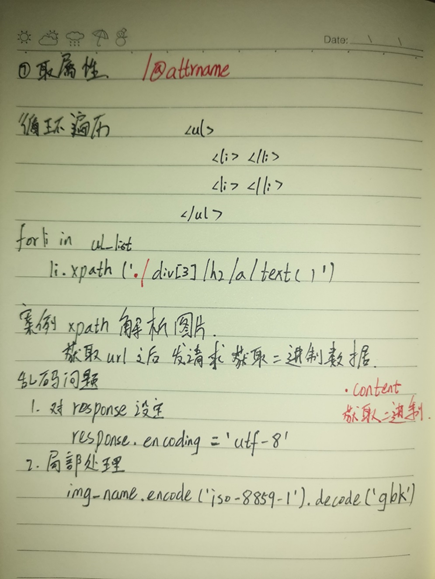 Date:
①取属性 /@attrname
循环遍历 <ul>
<li> </li>
<li> </li>
</ul>
for li in ul_list
li.xpath('./div[3]/h2/a/text()')
案例 xpath 解析图片.
获取url之后 发请求 获取二进制数据.
乱码问题 .content
1. 对response设定 获取二进制.
response.encoding='utf-8'
2. 局部处理
img-name.encode('iso-8859-1').decode('gbk')